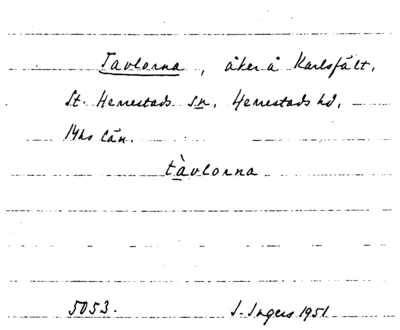 Tavlorna, åker å Karlsfält,
St. Herrestads sn, Herrestads hd,
Mhs län.
tàvlorna
5053. I. Ingers 1951